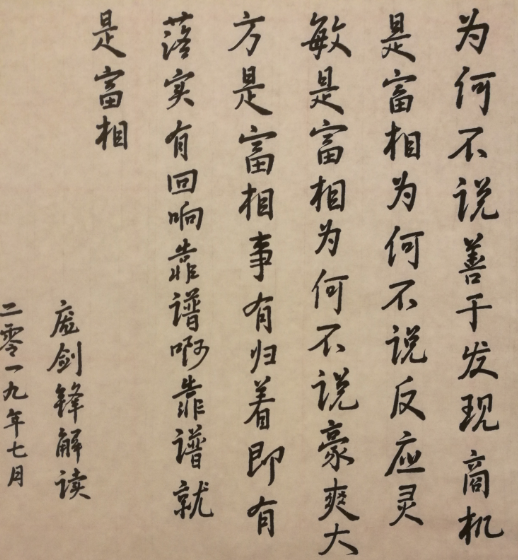 为何不说善于发现商机
是富相为何不说反应灵
敏是富相为何不说豪爽大
方是富相事有归着即有
落实有回响靠谱啊靠谱就
是富相
虚剑锋解读
二零一九年七月